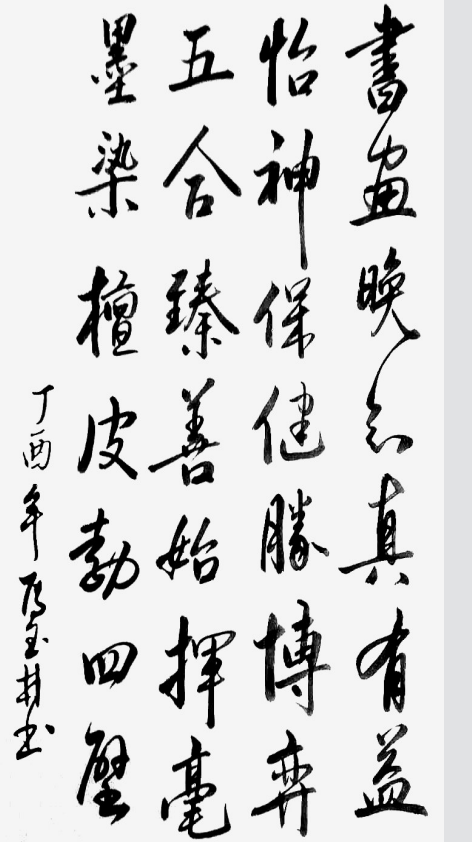 書画晚知真有益
怡神保健勝博弈
五合臻善始揮毫
墨染檀皮勒四壁
丁酉年 玉林书